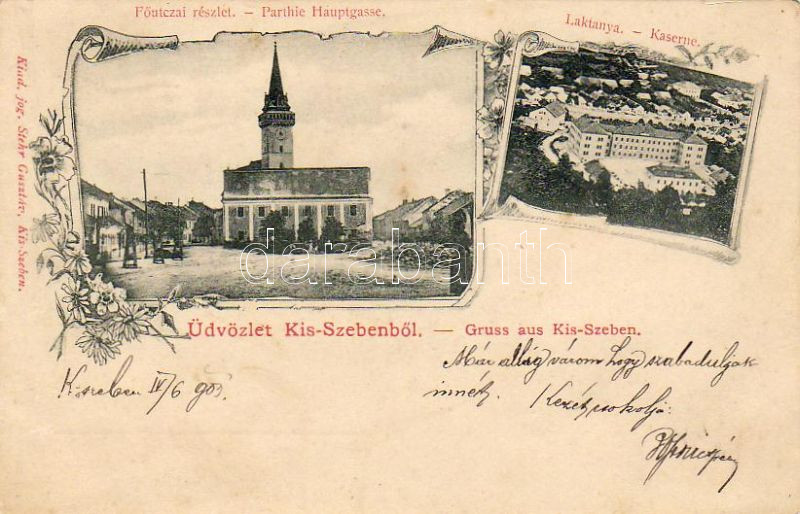 Főutczai részlet. - Parthie Hauptgasse.
Laktanya. - Kaserne.
Kiad. jog. Stehr Gusztáv, Kis-Szeben.
darabanth
Üdvözlet Kis-Szebenből. — Gruss aus Kis-Szeben.
Kszeben IV/6 903
Már allig várom hogy szabaduljak
innét. Kezét csokolja: